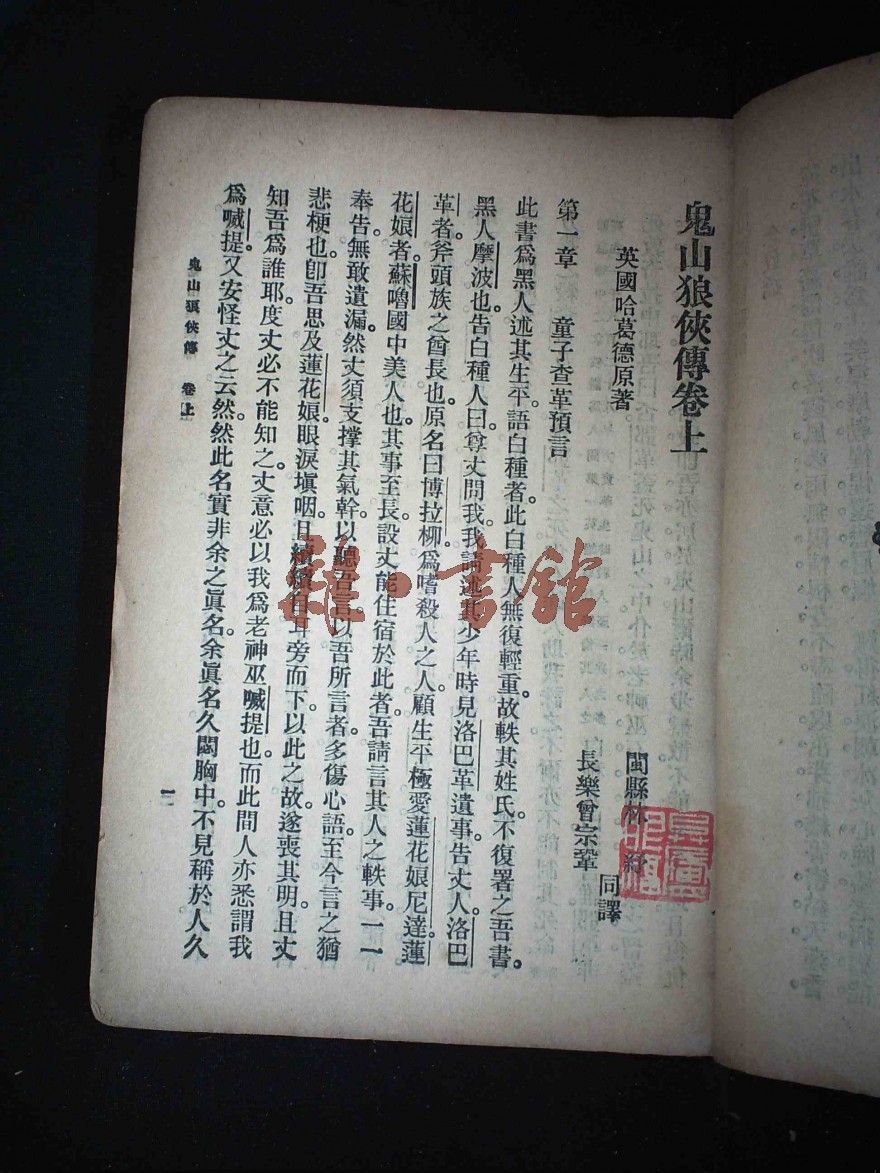 鬼山狼俠傳卷上
英國哈葛德原著
閩縣林紓
長樂曾宗鞏
同譯
第一章 童子查革預言
此書爲黑人述其生平。語白種者。此白種人無復輕重。故軼其姓氏。不復署之。吾書。
黑人摩波也。告白種人曰。尊丈問我。我請述其少年時見洛巴革遺事。告丈人。洛巴
革者。斧頭族之酋長也。原名曰博拉柳。爲嗜殺人之人。顧生平極愛蓮花娘尼達。蓮
花娘者。蘇嚕國中美人也。其事至長。設丈能住宿於此者。吾請言其人之軼事。一一
奉告。無敢遺漏。然丈須支撐其氣幹。以聽吾言。以吾所言者。多傷心語。至今言之。猶
悲梗也。卽吾思及蓮花娘。眼淚塡咽。且續續自耳旁而下。以此之故。遂喪其明。且丈
知吾爲誰耶。度丈必不能知之。丈意必以我爲老神巫噉提也。而此間人亦悉謂我
爲噉提。又安怪丈之云然。然此名實非余之眞名。余眞名久閟胸中。不見稱於人久
鬼山狼俠傳 卷上
一
雜·書館